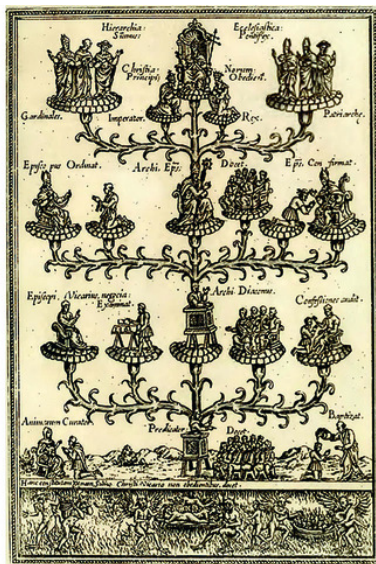 Hierarchia Ecclesiastica:
Sum̄us Pontifex.
Christia: Norum:
Principis Obedient.
Cardinales. Imperator. Rex. Patriarchę.
Episco pus Ordinat. Archi Ep̄s. Docet. Ep̄s. Con firmat.
Episcopi Vicarius, negocia: Archi Diaconus. Confessiones audit.
Examinat.
Animarum Curator. Predicator. Docet. Baptizat.
Christi Vicario non obedientibus, docet.